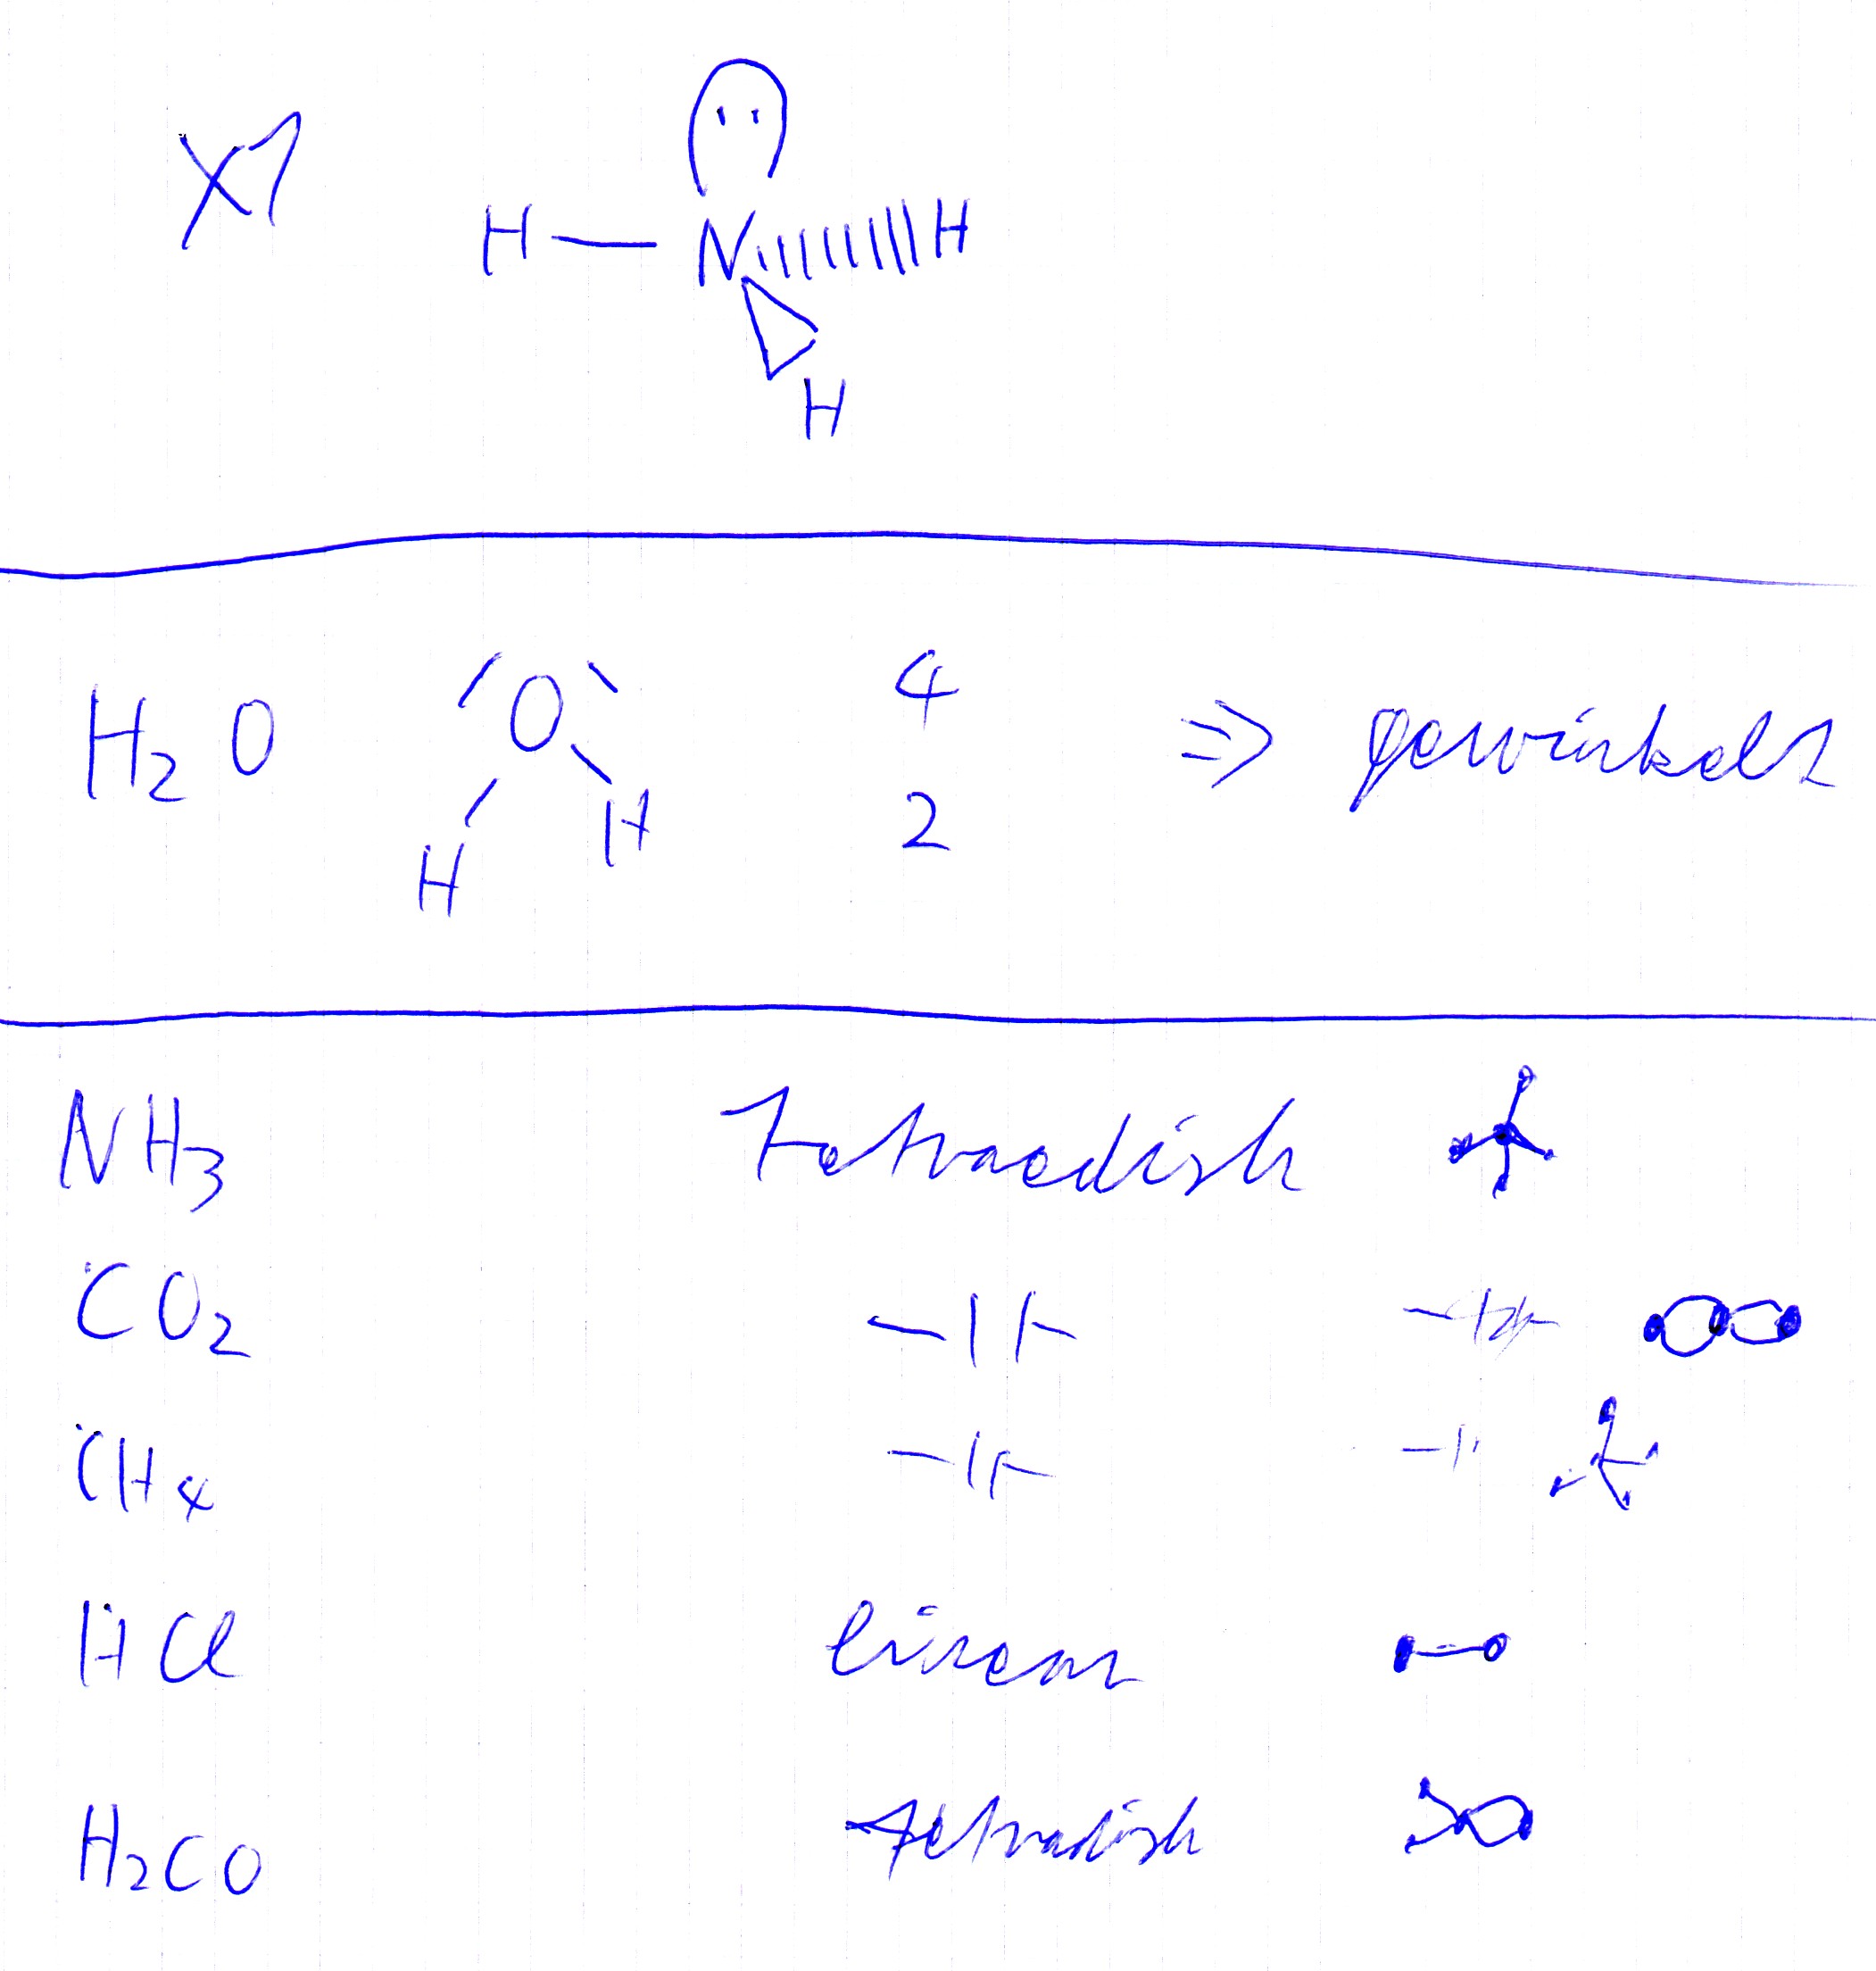 X1
H — N H
H
H₂O O H H 4 2 ⇒ gewinkelt
NH₃ Tetraedish
CO₂ -11-
CH₄ -11-
HCl linear
H₂CO tetradish